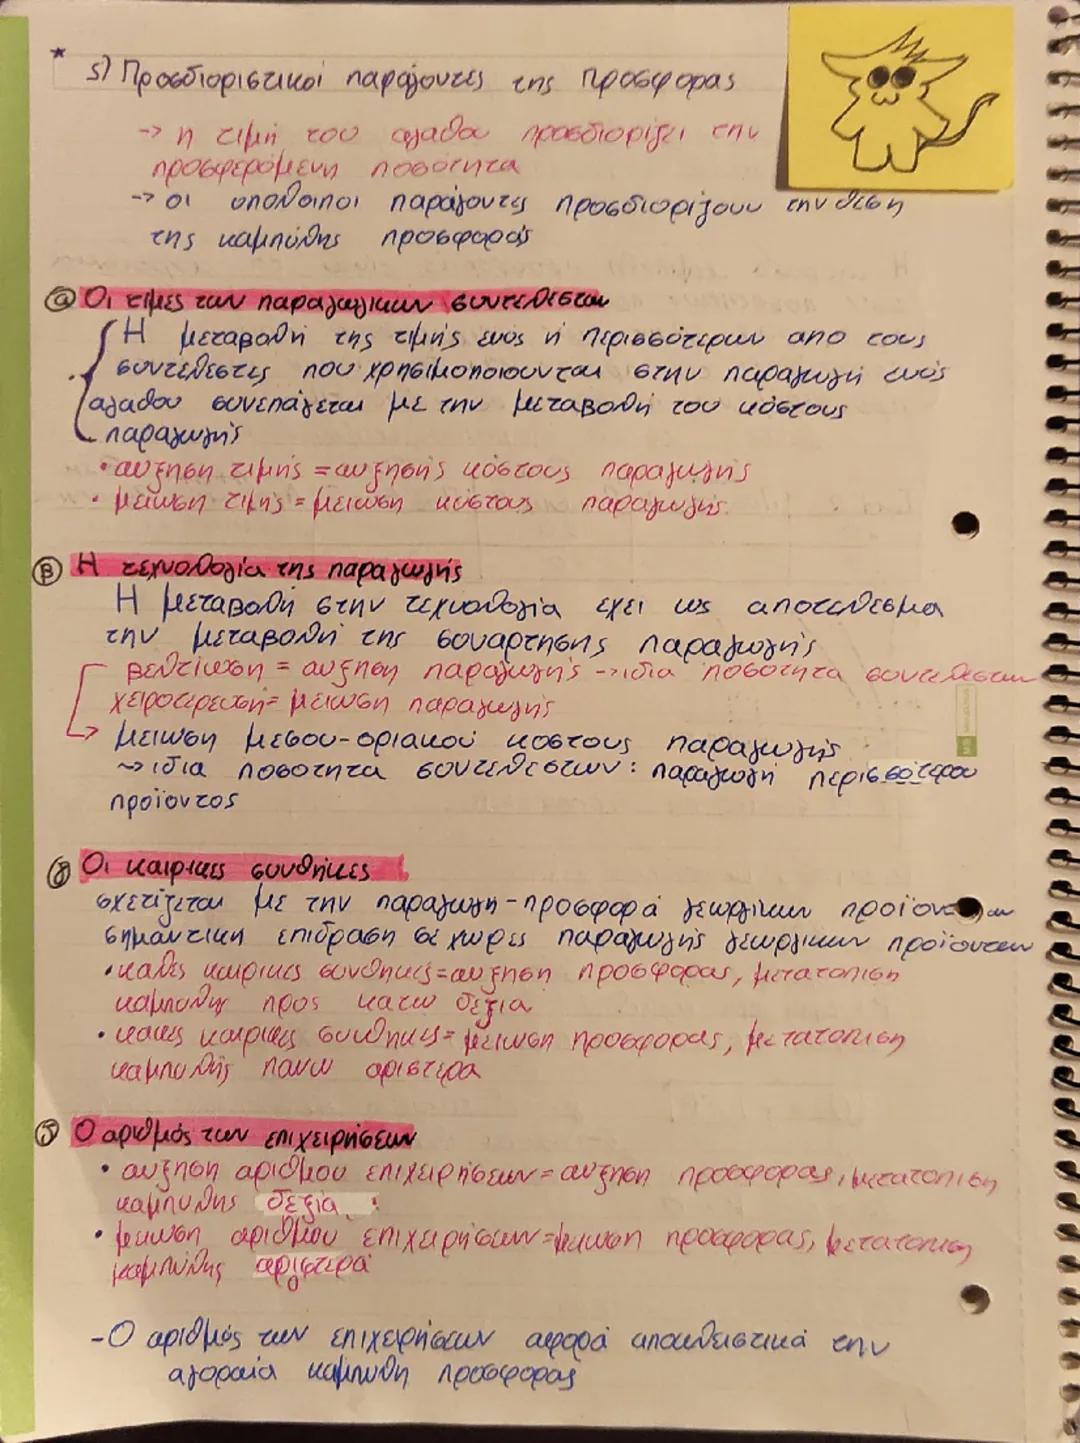 * 5) Προσδιοριστικοί παράγοντες της Προσφορας
→ η τιμή του αγαθου προσδιορίζει την
προσφερόμενη ποσότητα
→ οι υπολοιποι παράγοντες προσδιορίζουν την θεση
της καμπύλης προσφοράς
α Οι τιμες των παραγωγικων συντελεστων
Η μεταβολή της τιμής ενός ή περισσότερων απο τους
συντελεστες που χρησιμοποιουνται στην παραγωγή ενός
αγαθου συνεπάγεται με την μεταβολή του κόστους
παραγωγής
• αυξηση τιμής = αυξησής κόστους παραγωγής
• μείωση τιμής = μειωση κόστους παραγωγής.
β Η τεχνολογία της παραγωγής
Η μεταβολή στην τεχνολογία εχει ως αποτελεσμα
την μεταβολή της συναρτησης παραγωγής
βελτίωση = αυξηση παραγωγής → ιδια ποσότητα συντελεστων
χειροτερευση = μειωση παραγωγής
→ μειωση μεσου-οριακού κοστους παραγωγής
→ ιδια ποσοτητα συντελεστων: παραγωγή περισσότερου
προϊοντος
γ Οι καιρικες συνθήκες
σχετίζεται με την παραγωγη - προσφορά γεωργικων
σημαντικη επιδραση σε χωρες παραγωγής γεωργικων προϊοντων
• καλες καιρικες συνθηκες = αυξηση προσφορας, μετατοπιση
καμπυλης προς κατω δεξια
• κακες καιρικες συνθηκες = μειωση προσφορας, μετατοπιση
καμπυλής πανω αριστερα
δ Ο αριθμός των επιχειρήσεων
• αυξηση αριθμου επιχειρήσεων = αυξηση προσφορας, μετατοπιση
καμπυλης δεξιά
• μειωση αριθμου επιχειρήσεων = μειωση προσφορας, μετατοπιση
καμπύλης αριστερά
- Ο αριθμός των επιχειρήσεων αφορά αποκλειστικά την
αγοραία καμπυλη προσφορας